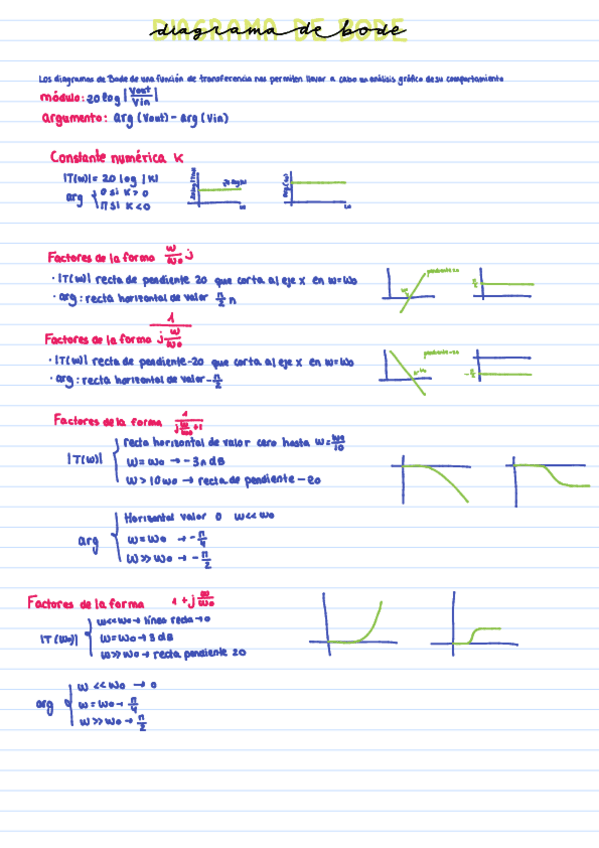 diagrama de Bode
Los diagramas de Bode de una función de transferencia nos permiten llevar a cabo un análisis gráfico de su comportamiento
módulo: 20 log |Vout/Vin|
argumento: arg (Vout) - arg (Vin)
Constante numérica K
|T(w)| = 20 log |K|
arg { 0 si K > 0
π si K < 0
Factores de la forma w/w0 j
· |T(w)| recta de pendiente 20 que corta al eje x en w=w0
pendiente 20
· arg: recta horizontal de valor π/2 π
Factores de la forma 1/(j w/w0)
· |T(w)| recta de pendiente -20 que corta al eje x en w=w0
pendiente -20
· arg: recta horizontal de valor - π/2
Factores de la forma 1/(j w/w0 +1)
|T(w)| { recta horizontal de valor cero hasta w = w0/10
w = w0 → -3π dB
w > 10w0 → recta de pendiente -20
arg { Horizontal valor 0 w<<w0
w = w0 → - π/4
w >> w0 → - π/2
Factores de la forma 1 + j w/w0
|T(w0)| { w<<w0 → línea recta → 0
w = w0 → 3 dB
w >> w0 → recta pendiente 20
arg { w << w0 → 0
w = w0 → π/4
w >> w0 → π/2